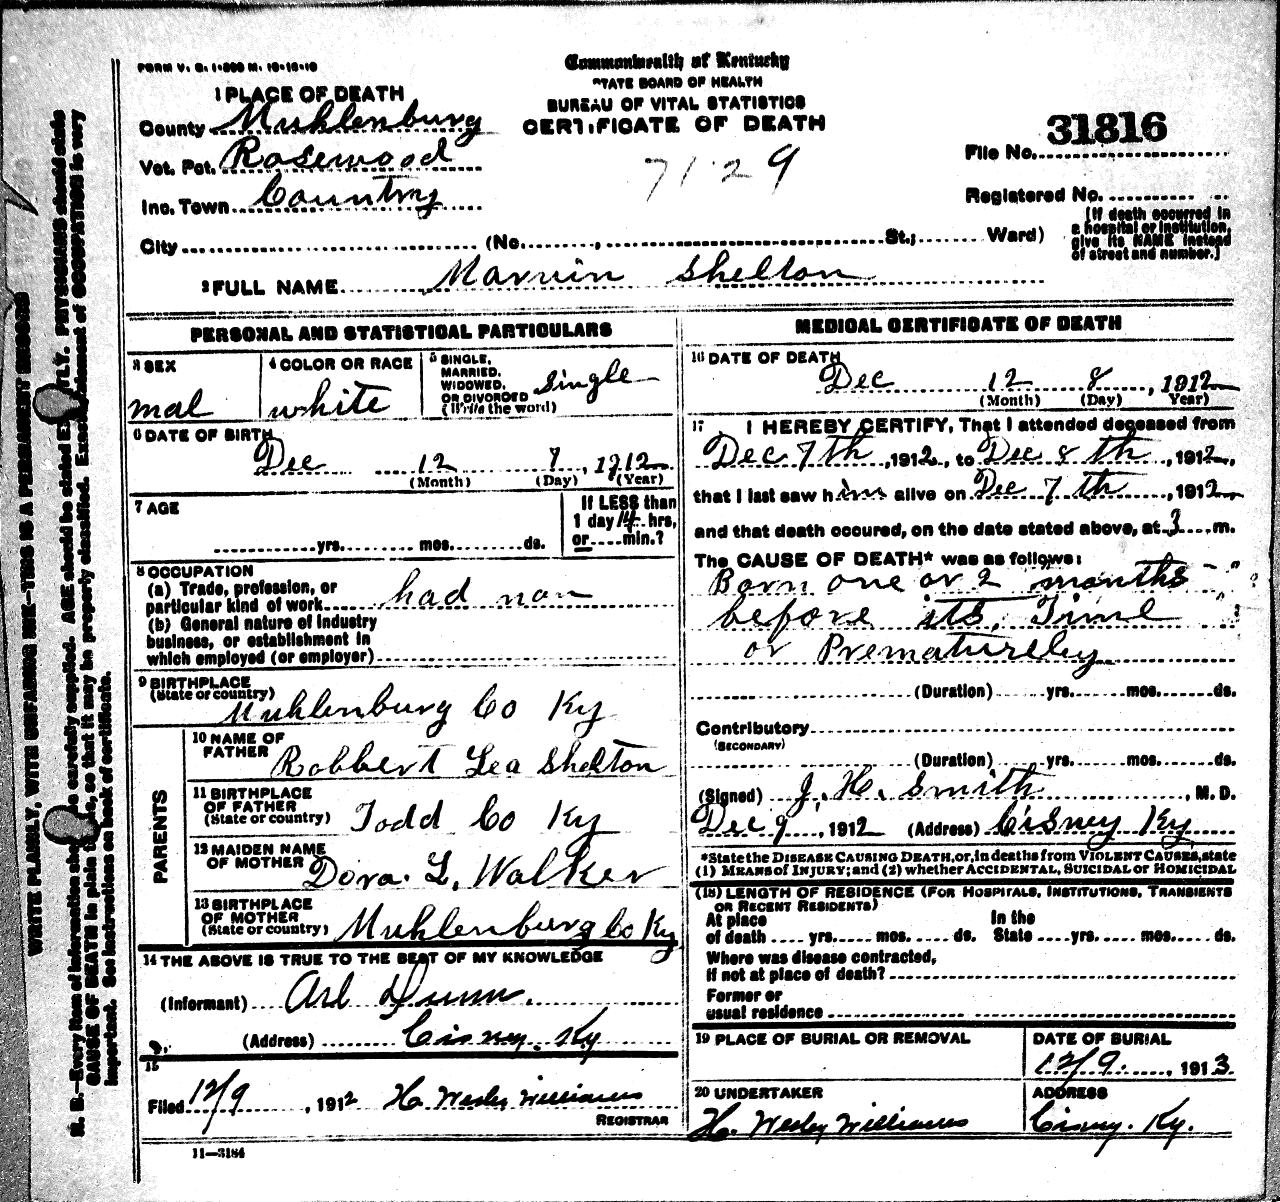 FORM V. S. 1-200 M. 10-10-10
Commonwealth of Kentucky
STATE BOARD OF HEALTH
BUREAU OF VITAL STATISTICS
CERTIFICATE OF DEATH
7129
31816
File No.
Registered No.
[If death occurred in a hospital or institution, give its NAME instead of street and number.]
1 PLACE OF DEATH
County Muhlenburg
Vot. Pct. Rosewood
Inc. Town Country
City (No. , St.; Ward)
2 FULL NAME Marvin Shelton
PERSONAL AND STATISTICAL PARTICULARS
3 SEX
mal
4 COLOR OR RACE
white
5 SINGLE, MARRIED, WIDOWED, OR DIVORCED (Write the word)
single
6 DATE OF BIRTH
Dec 12 7, 1912
(Month) (Day) (Year)
7 AGE
yrs. mos. ds.
If LESS than
1 day 14 hrs,
or min.?
8 OCCUPATION
(a) Trade, profession, or
particular kind of work had non
(b) General nature of industry
business, or establishment in
which employed (or employer)
9 BIRTHPLACE
(State or country)
Muhlenburg Co Ky
PARENTS
10 NAME OF FATHER
Robbert Lea Shelton
11 BIRTHPLACE OF FATHER
(State or country) Todd Co Ky
12 MAIDEN NAME OF MOTHER
Dora. L. Walker
13 BIRTHPLACE OF MOTHER
(State or country) Muhlenburg Co Ky
14 THE ABOVE IS TRUE TO THE BEST OF MY KNOWLEDGE
(Informant) Arl Dunn.
(Address) Cisney. Ky
15
Filed 12/9, 1912 H. Wesley Williams
REGISTRAR
11—3184
MEDICAL CERTIFICATE OF DEATH
16 DATE OF DEATH
Dec 12 8, 1912
(Month) (Day) Year)
17 I HEREBY CERTIFY, That I attended deceased from
Dec 7th, 1912, to Dec 8th, 1912,
that I last saw him alive on Dec 7th, 1912
and that death occured, on the date stated above, at 3 m.
The CAUSE OF DEATH* was as follows:
Born one or 2 months
before its, Time
or Prematureley
(Duration) yrs. mos. ds.
Contributory
(SECONDARY)
(Duration) yrs. mos. ds.
(Signed) J. H. Smith, M. D.
Dec 9, 1912 (Address) Cisney Ky
*State the DISEASE CAUSING DEATH, or, in deaths from VIOLENT CAUSES, state
(1) MEANS OF INJURY; and (2) whether ACCIDENTAL, SUICIDAL OR HOMICIDAL
(18) LENGTH OF RESIDENCE (FOR HOSPITALS, INSTITUTIONS, TRANSIENTS
OR RECENT RESIDENTS)
At place In the
of death yrs. mos. ds. State yrs. mos. ds.
Where was disease contracted,
if not at place of death?
Former or
usual residence
19 PLACE OF BURIAL OR REMOVAL
DATE OF BURIAL
12/9., 1913
20 UNDERTAKER
H. Wesley Williams
ADDRESS
Cisney. Ky.
WRITE PLAINLY, WITH UNFADING INK—THIS IS A PERMANENT RECORD
N. B.—Every item of information should be carefully supplied. AGE should be stated EXACTLY. PHYSICIANS should state
CAUSE OF DEATH in plain terms, so that it may be properly classified. Exact statement of OCCUPATION is very
important. See instructions on back of certificate.